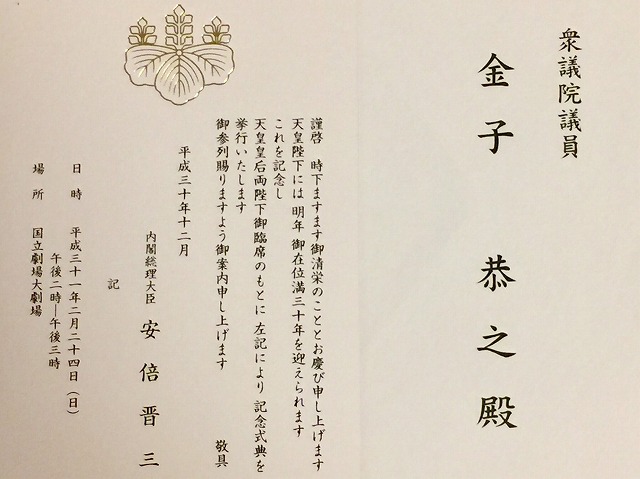 衆議院議員
金子　恭之殿
謹啓　時下ますます御清栄のこととお慶び申し上げます
天皇陛下には 明年 御在位満三十年を迎えられます
これを記念し
天皇皇后両陛下御臨席のもとに 左記により 記念式典を
挙行いたします
御参列賜りますよう御案内申し上げます
敬具
平成三十年十二月
内閣総理大臣　安倍晋三
記
日時　平成三十一年二月二十四日（日）
午後二時―午後三時
場所　国立劇場大劇場